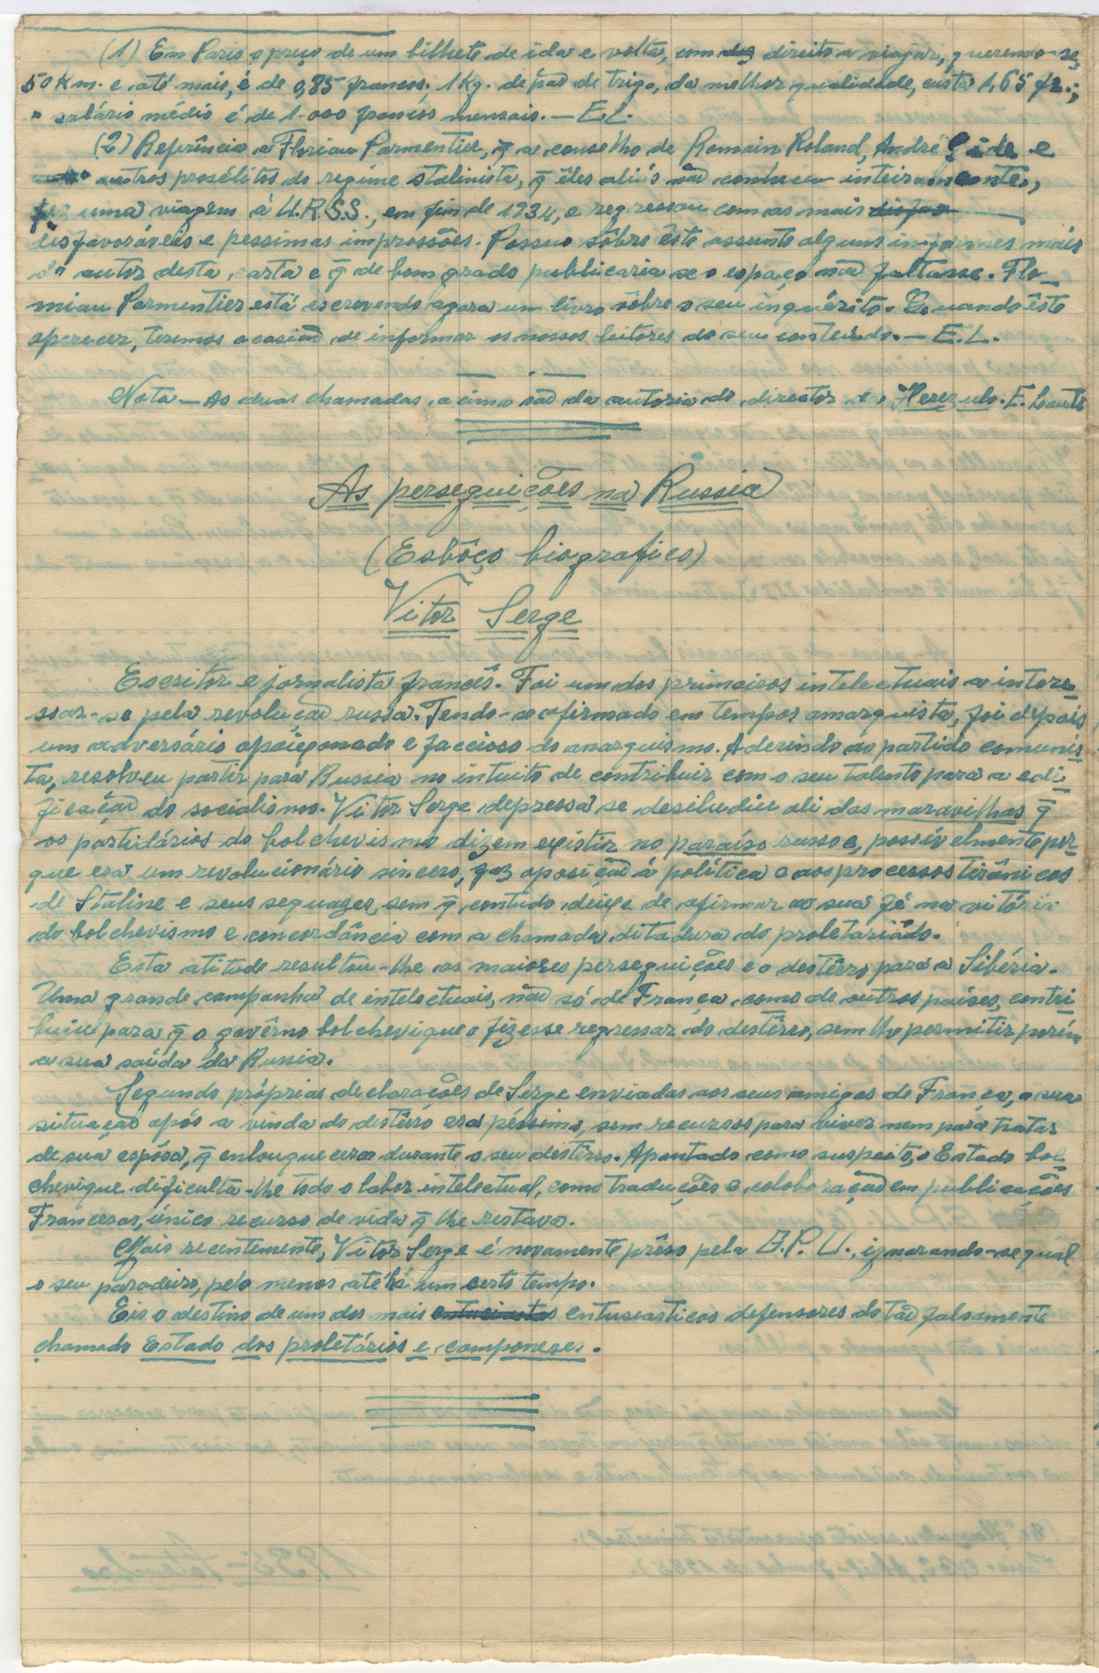 (1) Em Paris o preço de um bilhete de ida e volta, com direito a viajar, querendo-se,
50 km. e até mais, é de 0,85 francos. 1 kg. de pão de trigo, da melhor qualidade, custa 1,65 fr.;
o salário médio é de 1.000 francos mensais. — E.L.
(2) Refrência a Florian Parmentier, q̄ a conselho de Romain Roland, André Gide e
outros prosélitos do regime stalinista, q̄ êles aliás não conhecem inteiramente,
fez uma viagem á U.R.S.S., em fins de 1934, e regressou com as mais
desfavoráveis e pessimas impressões. Possuo sôbre êste assunto alguns informes mais
do autor desta carta e q̄ de bom grado publicaria se o espaço não faltasse. Flo-
rian Parmentier está escrevendo agora um livro sôbre o seu inquérito. Quando êste
aparecer, teremos ocasião de informar os nossos leitores do seu conteúdo. — E.L.
Nota — As duas chamadas acima são da autoria do director de Herezulo. E. Lanti
As perseguições na Russia
(Esbôço biografico)
Vitor Serge
Escritor e jornalista francês. Foi um dos primeiros intelectuais a intere-
ssar-se pela revolução russa. Tendo-se afirmado em tempos anarquista, foi depois
um adversário apaixonado e faccioso do anarquismo. Aderindo ao partido comunis-
ta, resolveu partir para Russia no intuito de contribuir com o seu talento para a edi-
ficação do socialismo. Vitor Serge depressa se desiludiu ali das maravilhas q̄
os partidários do bolchevismo dizem existir no paraíso russo e, possívelmente por-
que era um revolucionário sincero, fez oposição á política e aos processos tirânicos
de Staline e seus sequazes, sem q̄, contudo deixe de afirmar a sua fé na vitória
do bolchevismo e concordância com a chamada ditadura do proletariado.
Esta atitude resultou-lhe as maiores perseguições e o destêrro para a Sibéria.
Uma grande campanha de intelectuais, não só de França, como de outros países, contri-
buiu para q̄ o govêrno bolchevique o fizesse regressar do destêrro, sem lhe permitir porém
a sua saída da Russia.
Segundo próprias declarações de Serge enviadas aos seus amigos de França, a sua
situação após a vinda do destêrro era péssima, sem recursos para viver nem para tratar
de sua espôsa, q̄ enlouquecera durante o seu destêrro. Apontado como suspeito, o Estado bol-
chevique dificulta-lhe todo o labor intelectual, como traduções e colaboração em publicações
Francesas, único recurso de vida q̄ lhe restava.
Mais recentemente, Vitor Serge é novamente prêso pela G.P.U., ignorando-se qual
o seu paradeiro, pelo menos até há um certo tempo.
Eis o destino de um dos mais entuseasticos defensores do tão falsamente
chamado Estado dos proletários e camponeses.